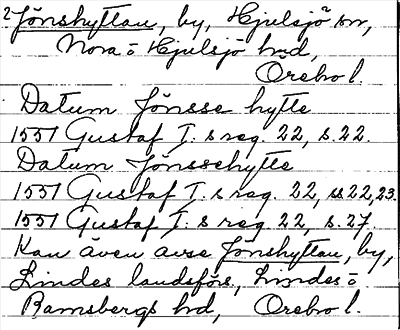 2 Jönshyttan, by, Hjulsjö sn,
Nora o Hjulsjö hrd,
Örebro l.
Datum Jönsse hytte
1551 Gustaf I:s reg. 22, s. 22.
Datum Jönssehytte
1551 Gustaf I:s reg. 22, ss 22, 23.
1551 Gustaf I:s reg. 22, s. 27.
Kan även avse Jönshyttan, by,
Lindes landsförs, Lindes o
Ramsbergs hrd, Örebro l.